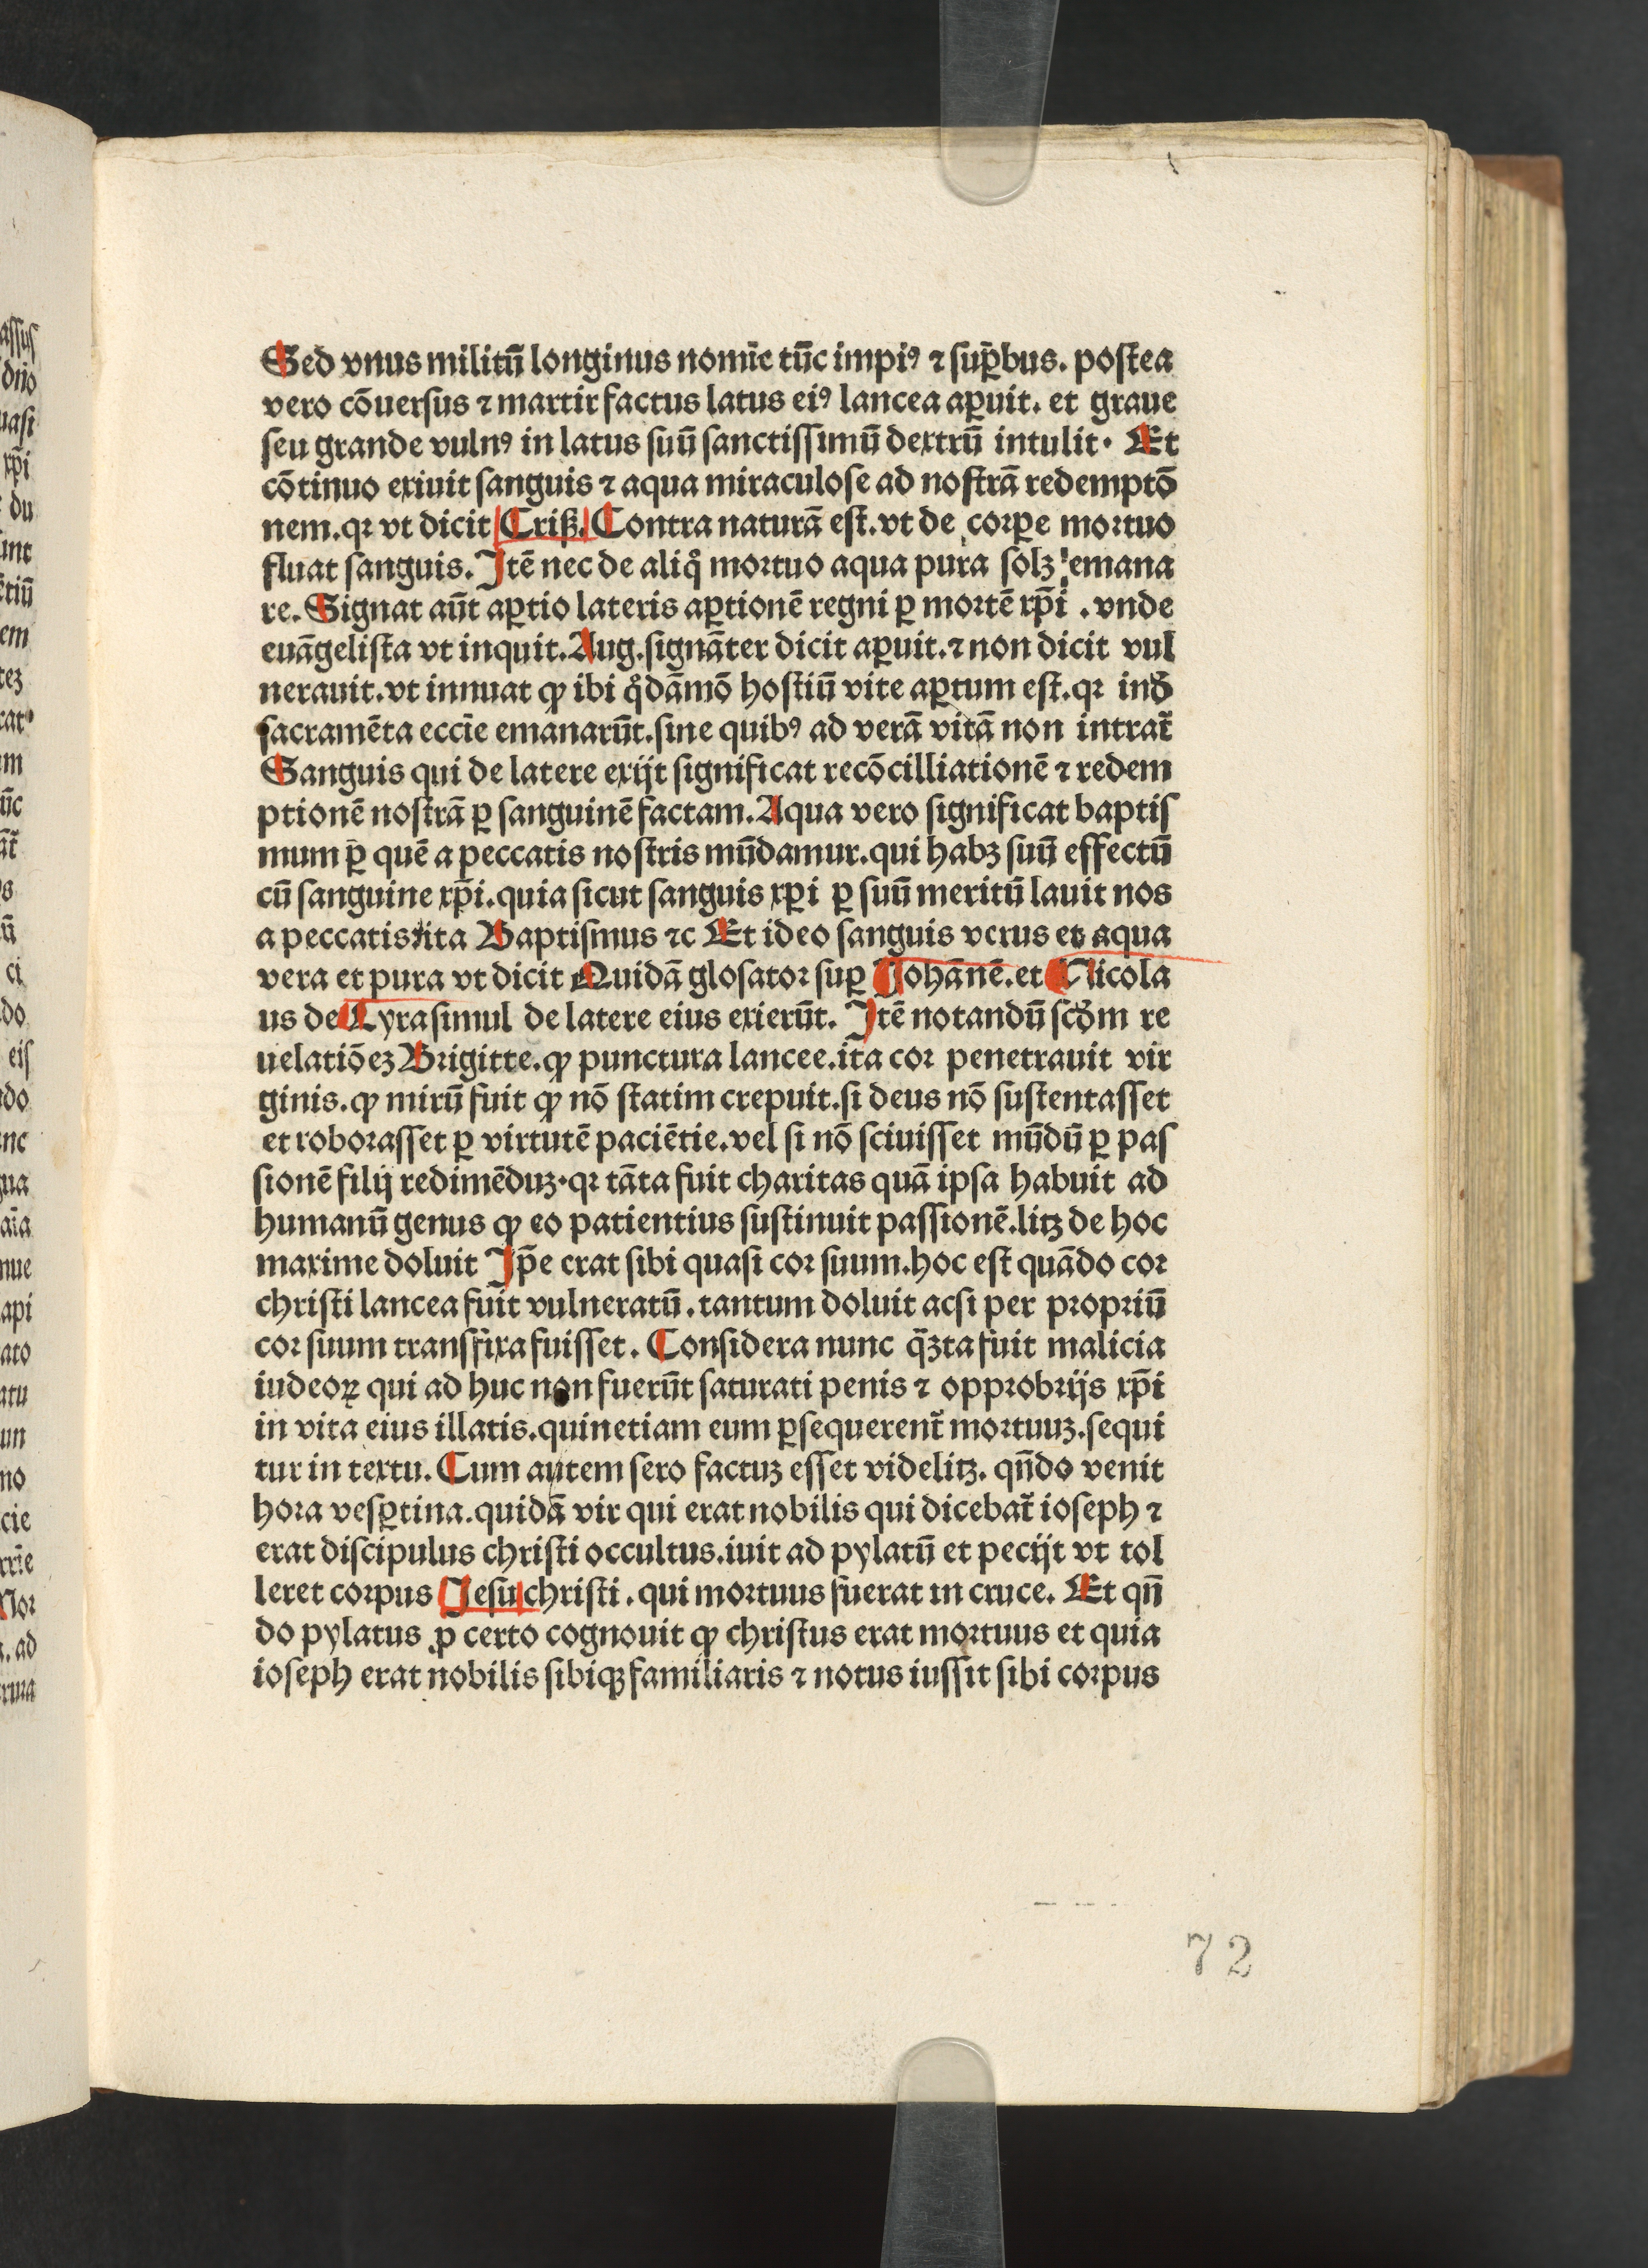 Sed vnus militū longinus nomīe tūc impiꝰ ⁊ sup̄bus. postea
vero cōuersus ⁊ martir factus latus eiꝰ lancea aꝑuit. et graue
seu grande vulnꝰ in latus suū sanctissimū dextrū intulit. Et
cōtinuo exiuit sanguis ⁊ aqua miraculose ad nostrā redemptō
nem. qꝛ vt dicit Criß. Contra naturā est. vt de corꝑe mortuo
fluat sanguis. Itē nec de aliqͦ mortuo aqua pura solꝫ emana
re. Signat aūt aꝑtio lateris aꝑtionē regni ꝑ mortē xp̄i . vnde
euāgelista vt inquit. Aug. signāter dicit aꝑuit. ⁊ non dicit vul
nerauit. vt innuat ꝙ ibi qͦdāmō hostiū vite aꝑtum est. qꝛ inđ
sacramēta eccīe emanarūt. sine quibꝰ ad verā vitā non intrat᷑
Sanguis qui de latere exijt significat recōcilliationē ⁊ redem
ptionē nostrā ꝑ sanguinē factam. Aqua vero significat baptis
mum ꝑ quē a peccatis nostris mūdamur. qui habꝫ suū effectū
cū sanguine xp̄i. quia sicut sanguis xpi ꝑ suū meritū lauit nos
a peccatis ita Baptismus ⁊c Et ideo sanguis verus et aqua
vera et pura vt dicit Quidā glosator suꝑ Johānē. et Nicola
us de Lyra simul de latere eius exierūt. Itē notandū scđm re
uelatiōeꝫ Brigitte. ꝙ punctura lancee. ita cor penetrauit vir
ginis. ꝙ mirū fuit ꝙ nō statim crepuit. si deus nō sustentasset
et roborasset ꝑ virtutē paciētie. vel si nō sciuisset mūdū ꝑ pas
sionē filij redimēduꝫ. qꝛ tāta fuit charitas quā ipsa habuit ad
humanū genus ꝙ eo patientius sustinuit passionē. litꝫ de hoc
maxime doluit Ip̄e erat sibi quasi cor suum. hoc est quādo cor
christi lancea fuit vulneratū. tantum doluit acsi per propriū
cor suum transfixa fuisset. Considera nunc q̄ꝫta fuit malicia
iudeoꝝ qui ad huc non fuerūt saturati penis ⁊ opprobrijs xp̄i
in vita eius illatis. quinetiam eum ꝑsequerent᷑ mortuuꝫ. sequi
tur in textu. Cum autem sero factuꝫ esset videlitꝫ. qn̄do venit
hora vesꝑtina. quidā vir qui erat nobilis qui dicebat᷑ ioseph ⁊
erat discipulus christi occultus. iuit ad pylatū et pecijt vt tol
leret corpus Jesu christi . qui mortuus fuerat in cruce. Et qn̄
do pylatus ꝓ certo cognouit ꝙ christus erat mortuus et quia
ioseph erat nobilis sibiqꝫ familiaris ⁊ notus iussit sibi corpus
72